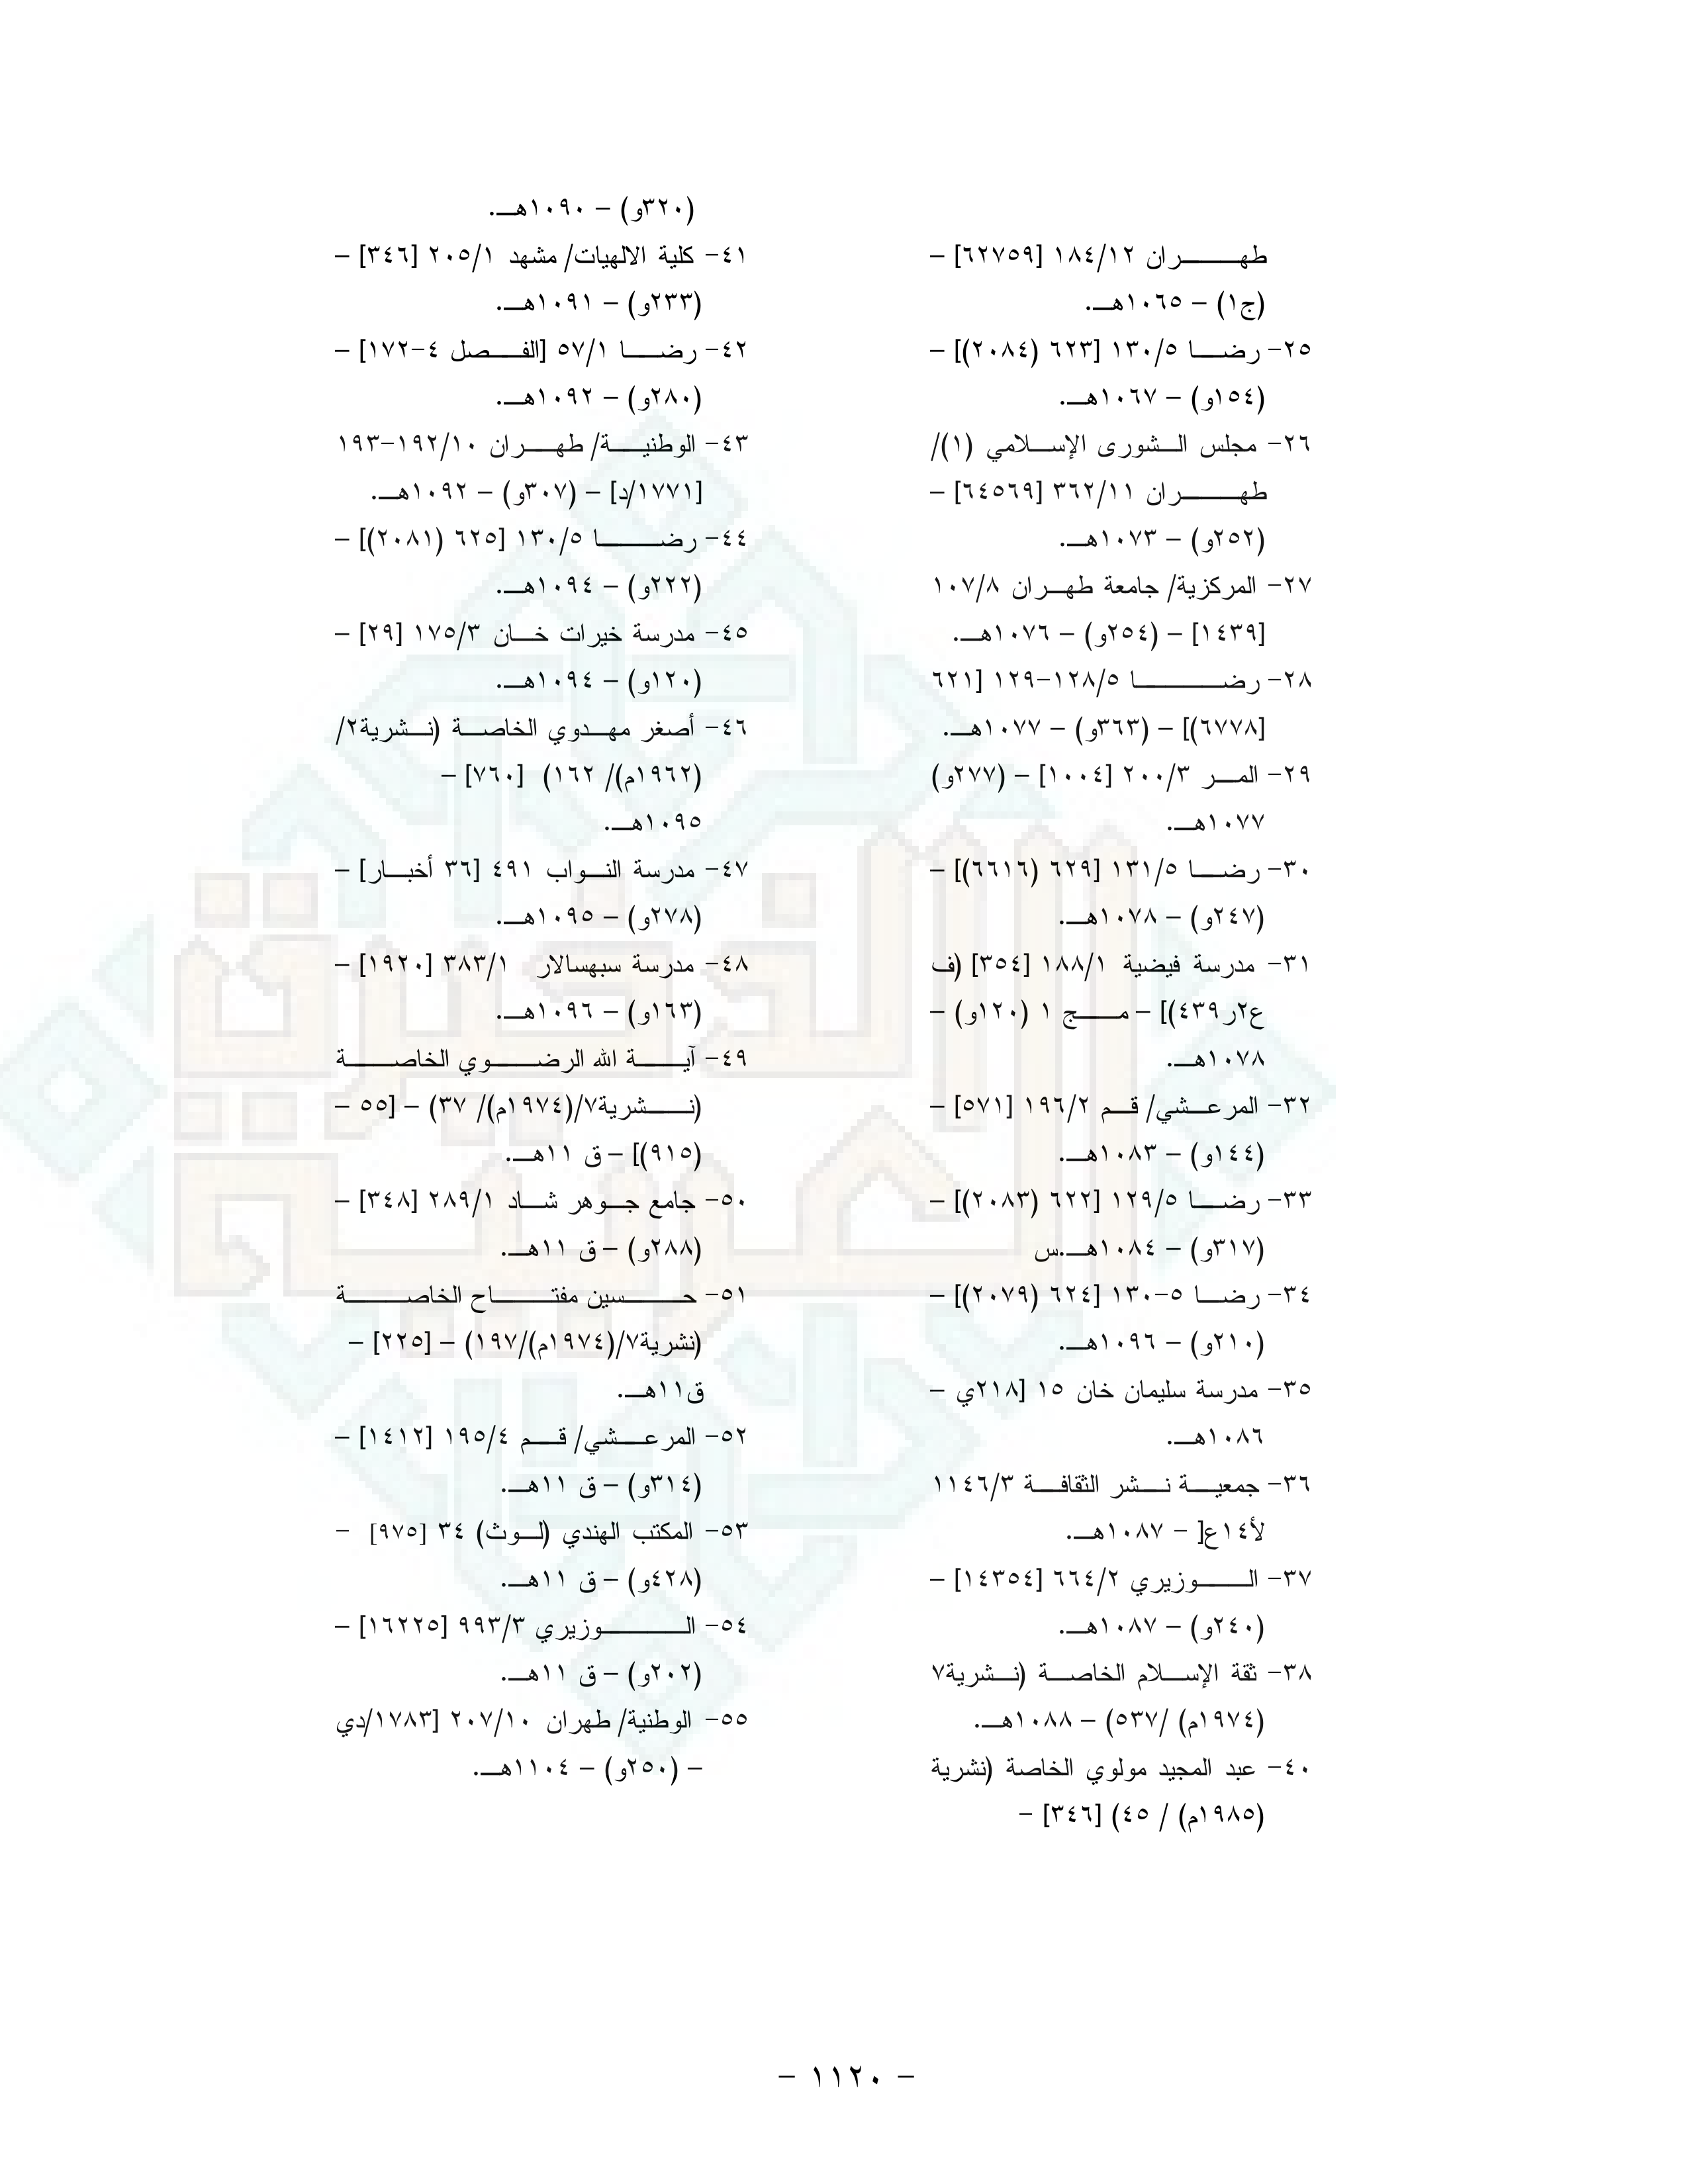 طهـران ١٨٤/١٢ [٦٢٧٥٩] –
(ج١) – ١٠٦٥هـ.
٢٥- رضـا ١٣٠/٥ [٦٢٣ (٢٠٨٤)] –
(١٥٤و) – ١٠٦٧هـ.
٢٦- مجلس الـشورى الإسـلامي (١)/
طهـران ٣٦٢/١١ [٦٤٥٦٩] –
(٢٥٢و) – ١٠٧٣هـ.
٢٧- المركزية/ جامعة طهـران ١٠٧/٨
[١٤٣٩] – (٢٥٤و) – ١٠٧٦هـ.
٢٨- رضـا ١٢٨/٥-١٢٩ [٦٢١
[٦٧٧٨)] – (٣٦٣و) – ١٠٧٧هـ.
٢٩- المـر ٢٠٠/٣ [١٠٠٤] – (٢٧٧و)
١٠٧٧هـ.
٣٠- رضـا ١٣١/٥ [٦٢٩ (٦٦١٦)] –
(٢٤٧و) – ١٠٧٨هـ.
٣١- مدرسة فيضية ١٨٨/١ [٣٥٤] (ف
ع٢ر٤٣٩)] – مـج ١ (١٢٠و) –
١٠٧٨هـ.
٣٢- المرعـشي/ قـم ١٩٦/٢ [٥٧١] –
(١٤٤و) – ١٠٨٣هـ.
٣٣- رضـا ١٢٩/٥ [٦٢٢ (٢٠٨٣)] –
(٣١٧و) – ١٠٨٤هـ.س
٣٤- رضـا ٥-١٣٠ [٦٢٤ (٢٠٧٩)] –
(٢١٠و) – ١٠٩٦هـ.
٣٥- مدرسة سليمان خان ١٥ [٢١٨ي –
١٠٨٦هـ.
٣٦- جمعيـة نـشر الثقافـة ١١٤٦/٣
لأ١٤ع] – ١٠٨٧هـ.
٣٧- الـوزيري ٦٦٤/٢ [١٤٣٥٤] –
(٢٤٠و) – ١٠٨٧هـ.
٣٨- ثقة الإسـلام الخاصـة (نـشرية٧
(١٩٧٤م) /٥٣٧) – ١٠٨٨هـ.
٤٠- عبد المجيد مولوي الخاصة (نشرية
(١٩٨٥م) / ٤٥) [٣٤٦] –
(٣٢٠و) – ١٠٩٠هـ.
٤١- كلية الالهيات/ مشهد ٢٠٥/١ [٣٤٦] –
(٢٣٣و) – ١٠٩١هـ.
٤٢- رضـا ٥٧/١ [الفـصل ٤-١٧٢] –
(٢٨٠و) – ١٠٩٢هـ.
٤٣- الوطنيـة/ طهـران ١٩٢/١٠-١٩٣
[١٧٧١/د] – (٣٠٧و) – ١٠٩٢هـ.
٤٤- رضـا ١٣٠/٥ [٦٢٥ (٢٠٨١)] –
(٢٢٢و) – ١٠٩٤هـ.
٤٥- مدرسة خيرات خـان ١٧٥/٣ [٢٩] –
(١٢٠و) – ١٠٩٤هـ.
٤٦- أصغر مهـدوي الخاصـة (نـشرية٢/
(١٩٦٢م)/ ١٦٢) [٧٦٠] –
١٠٩٥هـ.
٤٧- مدرسة النـواب ٤٩١ [٣٦ أخبـار] –
(٢٧٨و) – ١٠٩٥هـ.
٤٨- مدرسة سبهسالار ٣٨٣/١ [١٩٢٠] –
(١٦٣و) – ١٠٩٦هـ.
٤٩- آيـة الله الرضـوي الخاصـة
(نـشرية٧/(١٩٧٤م)/ ٣٧) – [٥٥ –
(٩١٥)] – ق ١١هـ.
٥٠- جامع جـوهر شـاد ٢٨٩/١ [٣٤٨] –
(٢٨٨و) – ق ١١هـ.
٥١- حـسين مفتـاح الخاصـة
(نشرية٧/(١٩٧٤م)/١٩٧) – [٢٢٥] –
ق١١هـ.
٥٢- المرعـشي/ قـم ١٩٥/٤ [١٤١٢] –
(٣١٤و) – ق ١١هـ.
٥٣- المكتب الهندي (لـوث) ٣٤ [٩٧٥] –
(٤٢٨و) – ق ١١هـ.
٥٤- الـوزيري ٩٩٣/٣ [١٦٢٢٥] –
(٢٠٢و) – ق ١١هـ.
٥٥- الوطنية/ طهران ٢٠٧/١٠ [١٧٨٣/دي
– (٢٥٠و) – ١١٠٤هـ.
– ١١٢٠ –